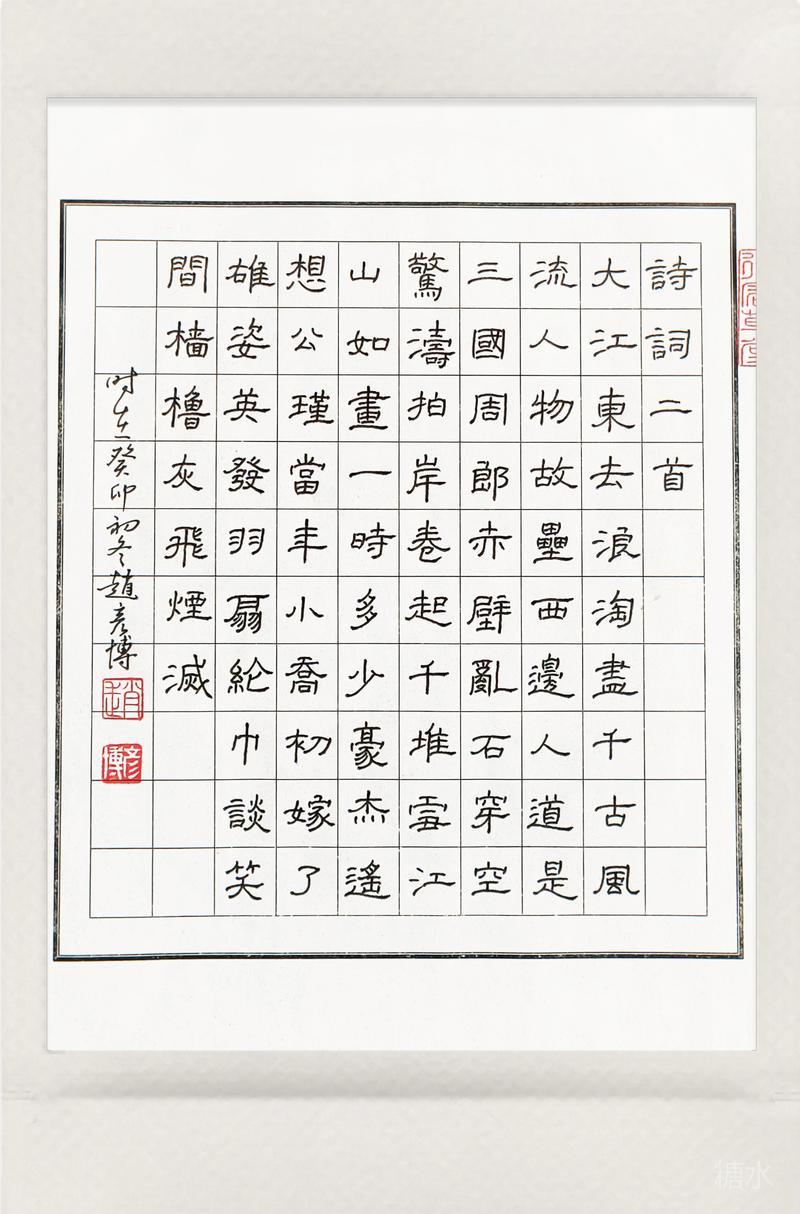 詩詞二首
大江東去浪淘盡千古風
流人物故壘西邊人道是
三國周郎赤壁亂石穿空
驚濤拍岸卷起千堆雪江
山如畫一時多少豪杰遙
想公瑾當年小喬初嫁了
雄姿英發羽扇綸巾談笑
間檣櫓灰飛煙滅
时在癸卯初冬趙彥博
趙
彥博
糖水